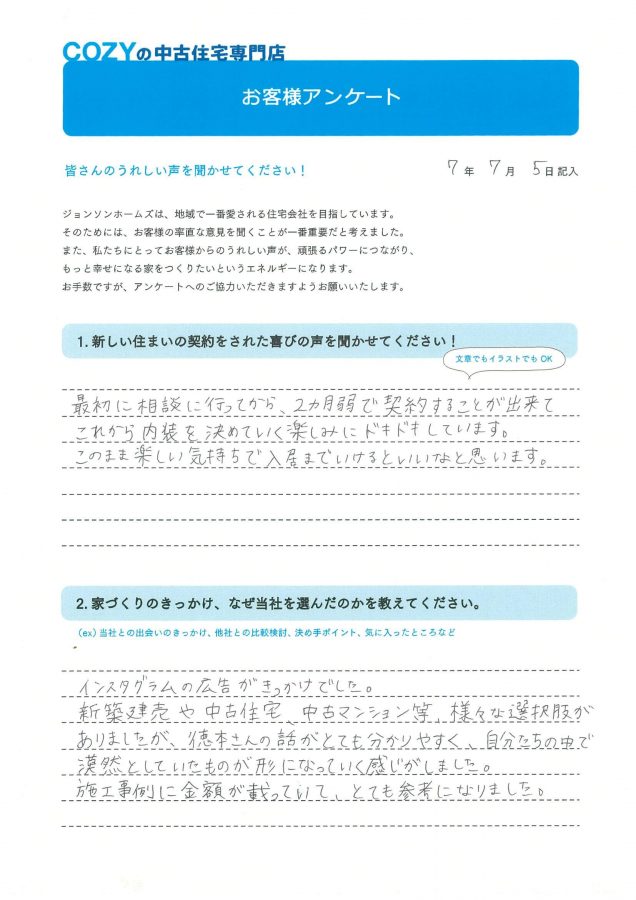 COZYの中古住宅専門店
お客様アンケート
皆さんのうれしい声を聞かせてください！
7年 7月 5日記入
ジョンソンホームズは、地域で一番愛される住宅会社を目指しています。
そのためには、お客様の率直な意見を聞くことが一番重要だと考えました。
また、私たちにとってお客様からのうれしい声が、頑張るパワーにつながり、
もっと幸せになる家をつくりたいというエネルギーになります。
お手数ですが、アンケートへのご協力いただきますようお願いいたします。
1. 新しい住まいの契約をされた喜びの声を聞かせてください！
文章でもイラストでも OK
最初に相談に行ってから、2カ月弱で契約することが出来て
これから内装を決めていく楽しみにドキドキしています。
このまま楽しい気持ちで入居までいけるといいなと思います。
2. 家づくりのきっかけ、なぜ当社を選んだのかを教えてください。
（ex）当社との出会いのきっかけ、他社との比較検討、決め手ポイント、気に入ったところなど
インスタグラムの広告がきっかけでした。
新築建売や中古住宅、中古マンション等、様々な選択肢が
ありましたが、徳本さんの話がとても分かりやすく、自分たちの中で
漠然としていたものが形になっていく感じがしました。
施工事例に金額が載っていて、とても参考になりました。